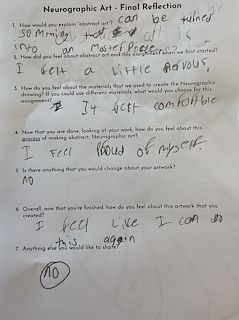 Neurographic Art - Final Reflection
1. How would you explain "abstract art"? can be turned
into an Master Piece
2. How did you feel about abstract art and this assignment when we first started?
I felt a little nervous
3. How do you feel about the materials that we used to create the Neurographic
drawing? If you could use different materials, what would you choose for this
assignment?
It felt comfortble
4. Now that you are done, looking at your work, how do you feel about this
process of making abstract, Neurographic art?
I Feel Proud of myself.
5. Is there anything that you would change about your artwork?
NO
6. Overall, now that you're finished, how do you feel about this artwork that you
created?
I feel Like I can do
this again
7. Anything else you would like to share?
NO